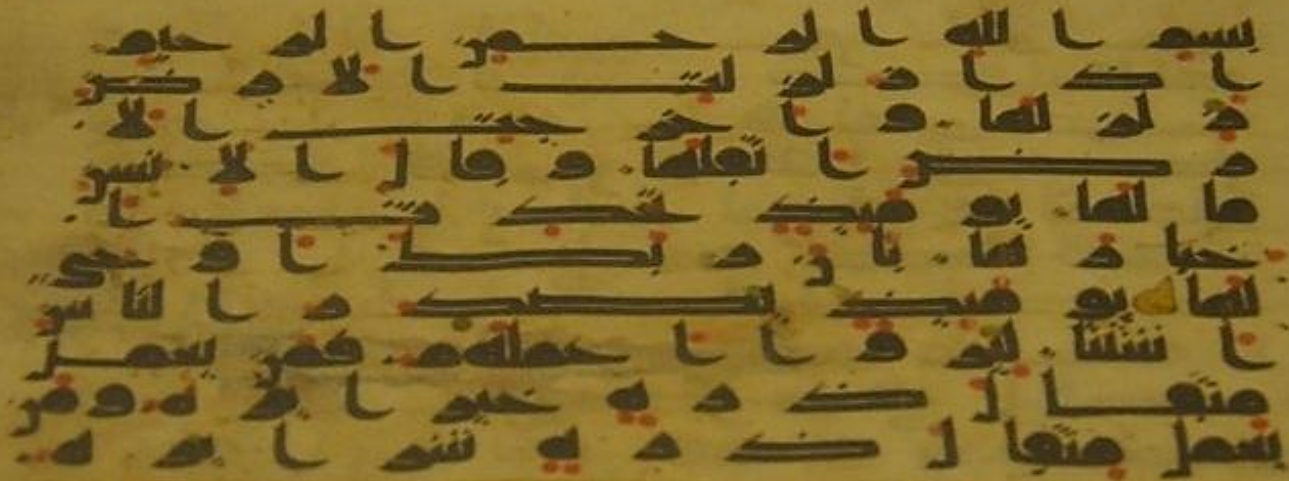 بسم الله الرحمن الرحيم
اذا زلزلت الارض
زلزلها واخرجت الا
رض اثقلها وقال الانسن
ما لها يومئذ تحدث ا
خبارها بان ربك اوحى
لها يومئذ يصدر الناس
اشتتا ليروا اعملهم فمن يعمل
مثقال ذرة خيرا يره ومن
يعمل مثقال ذرة شرا يره